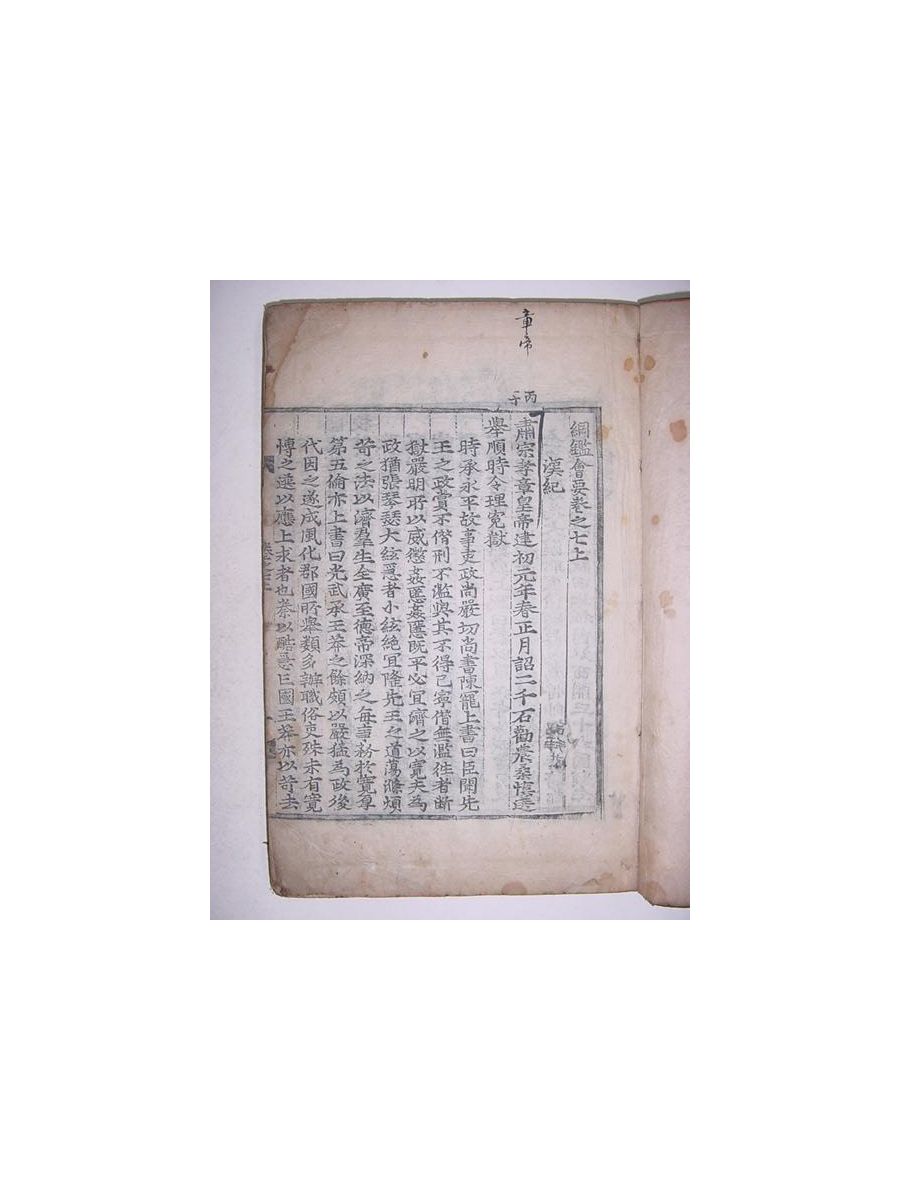 章帝
丙子
綱鑑會要卷之七上
漢紀
肅宗孝章皇帝建初元年春正月詔二千石勸農桑慎選
舉順時令理寃獄
時承永平故事吏政尚嚴切尚書陳寵上書曰臣聞先
王之政賞不僭刑不濫與其不得已寧僭無濫徃者斷
獄嚴明所以威懲姦慝姦慝旣平必宜濟之以寬夫爲
政猶張琴瑟大絃急者小絃絶宜隆先王之道蕩滌煩
苛之法以濟羣生全廣至德帝深納之每事務於寬厚
第五倫亦上書曰光武承王莽之餘頗以嚴猛爲政後
代因之遂成風化郡國所舉類多辦職俗吏殊未有寬
愽之選以應上求者也秦以酷急亡國王莽亦以苛法